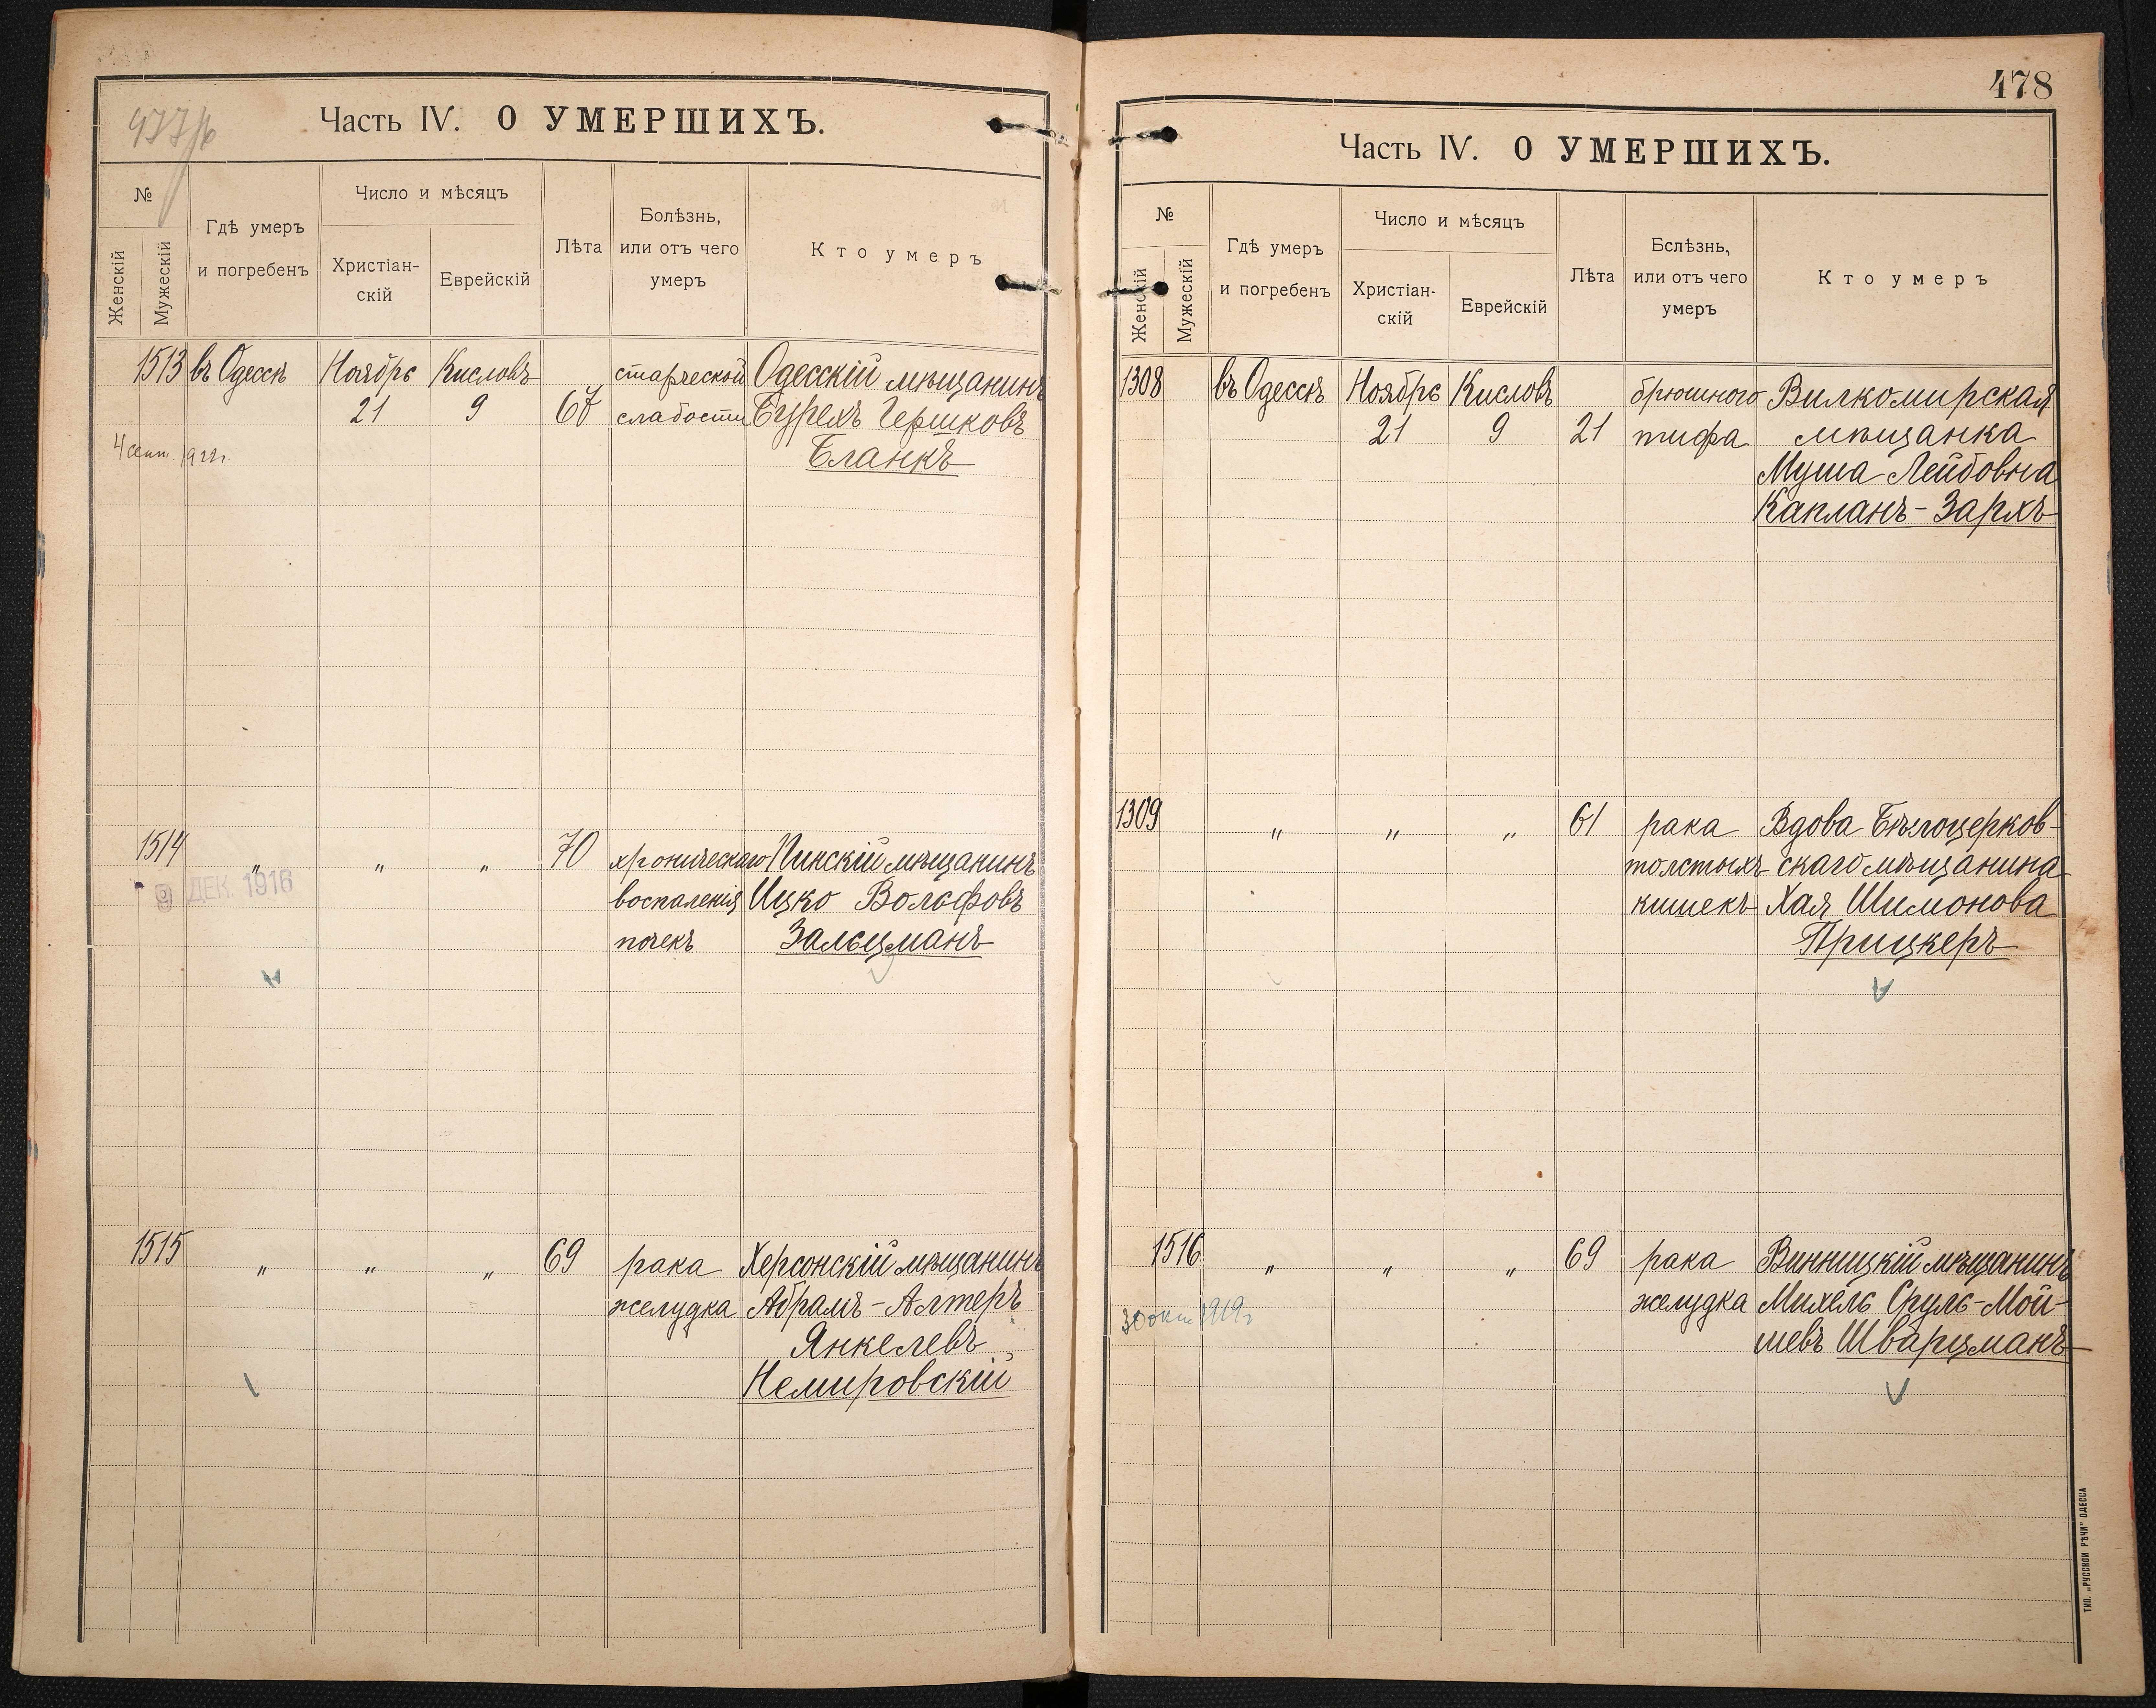 477/16
Часть IV. О УМЕРШИХЪ.
№
Женскій
Мужескій
Гдѣ умеръ
и погребенъ
Число и мѣсяцъ
Христіан-
скій
Еврейскій
Лѣта
Болѣзнь,
или отъ чего
умеръ
Кто умеръ
1513 въ Одессѣ Ноябрь Кисловъ старческой Одесскій мѣщанинъ
21 9 67 слабости Бурехъ Гершковъ
4 сент 1922г. Бланкъ
1514 " " " 70 хроническаго Пинскій мѣщанинъ
9 ДЕК. 1916 воспаленія Ицко Вольфовъ
почекъ Зальцманъ
1515 " " " 69 рака Херсонскій мѣщанинъ
желудка Абрамъ-Алтеръ
Янкелевъ
Немировскій
478
Часть IV. О УМЕРШИХЪ.
№
Женскій
Мужескій
Гдѣ умеръ
и погребенъ
Число и мѣсяцъ
Христіан-
скій
Еврейскій
Лѣта
Бслѣзнь,
или отъ чего
умеръ
Кто умеръ
1308 въ Одессѣ Ноябрь Кисловъ брюшного Вилкомирская
21 9 21 тифа мѣщанка
Муша Лейбовна
Капланъ-Зархъ
1309 " " " 61 рака Вдова Бѣлоцерков-
толстыхъ скаго мѣщанина
кишекъ Хая Шимонова
Прицкеръ
1516 " " " 69 рака Винницкій мѣщанинъ
30 окт 1919г желудка Михель Сруль-Мой-
шевъ Шварцманъ
ТИП. „РУССКОЙ РѢЧИ" ОДЕССА